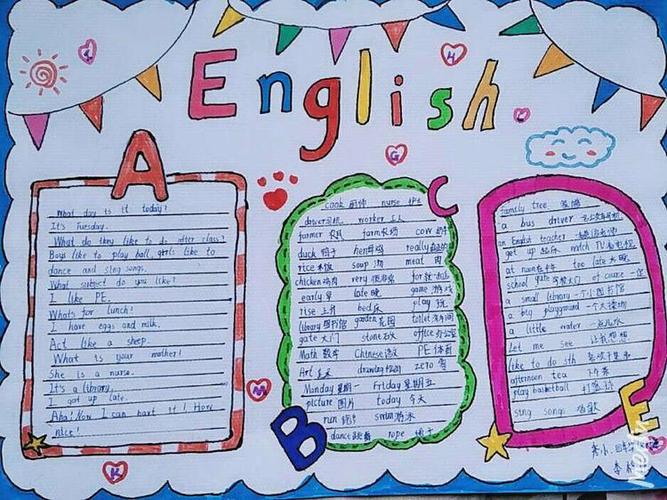 English
A
What day is it today?
It's Tuesday.
What do they like to do after class?
Boys like to play ball, girls like to
dance and sing songs.
What subject do you like?
I like PE.
Whats for lunch?
I have eggs and milk.
Act like a sheep.
What is your mother?
She is a nurse.
It's a library.
I got up late.
Aha! Now I can hant it! How
nice!
B
C
cook 厨师 nurse 护士
driver司机 worker 工人
farmer 农民 farm农场 cow 奶牛
duck 鸭子 hen母鸡 really
rice米饭 soup 汤 meat 肉
chicken鸡肉 very for
early 早 late 晚 game 游戏
rise 上升 bed床 play 玩
library图书馆 garden花园 toilet
gate 大门 stone office办公室
Math 数学 Chinese语文 PE体育
Art drawing zero 零
Munday星期一 Friday星期五
picture 图片 today 今天
run 跑步 swim游泳
dance跳舞 rope 绳子
family tree
a bus driver
an English teacher
get up 起床 watch TV看电视
at noon在中午 too late太晚
school gate学校大门 of course
a small library 一个小图书馆
a big playground 一个大操场
a little water
Let me see 让我想想
like to do sth
afternoon tea 下午茶
play basketball 打篮球
sing songs 唱歌
E